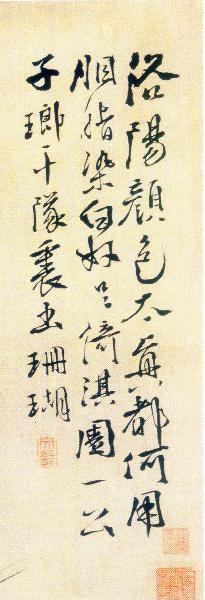 洛陽顏色太真都何用
胭脂染白奴只倚淇園一公
子瑯干隊裏出珊瑚